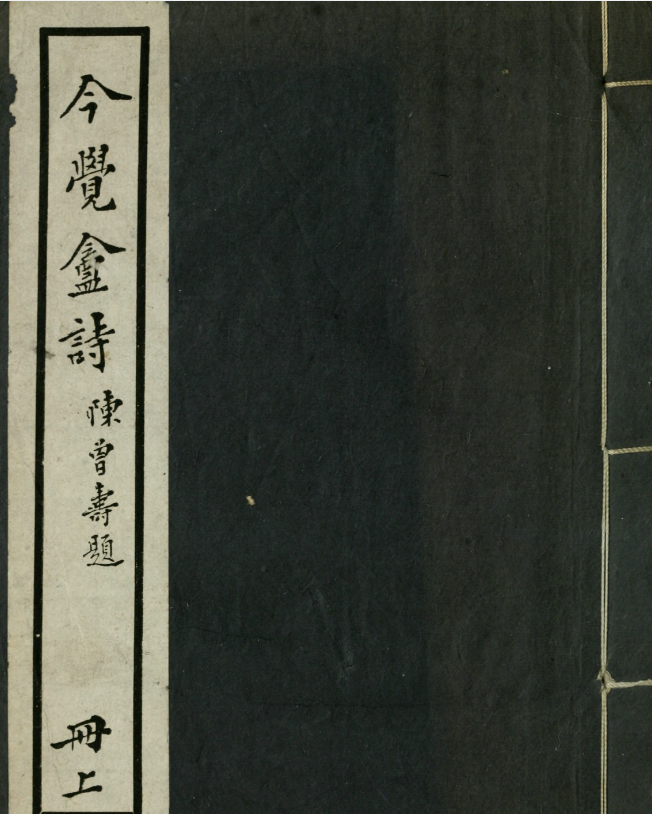 今覺盦詩
陳曾壽題
冊上